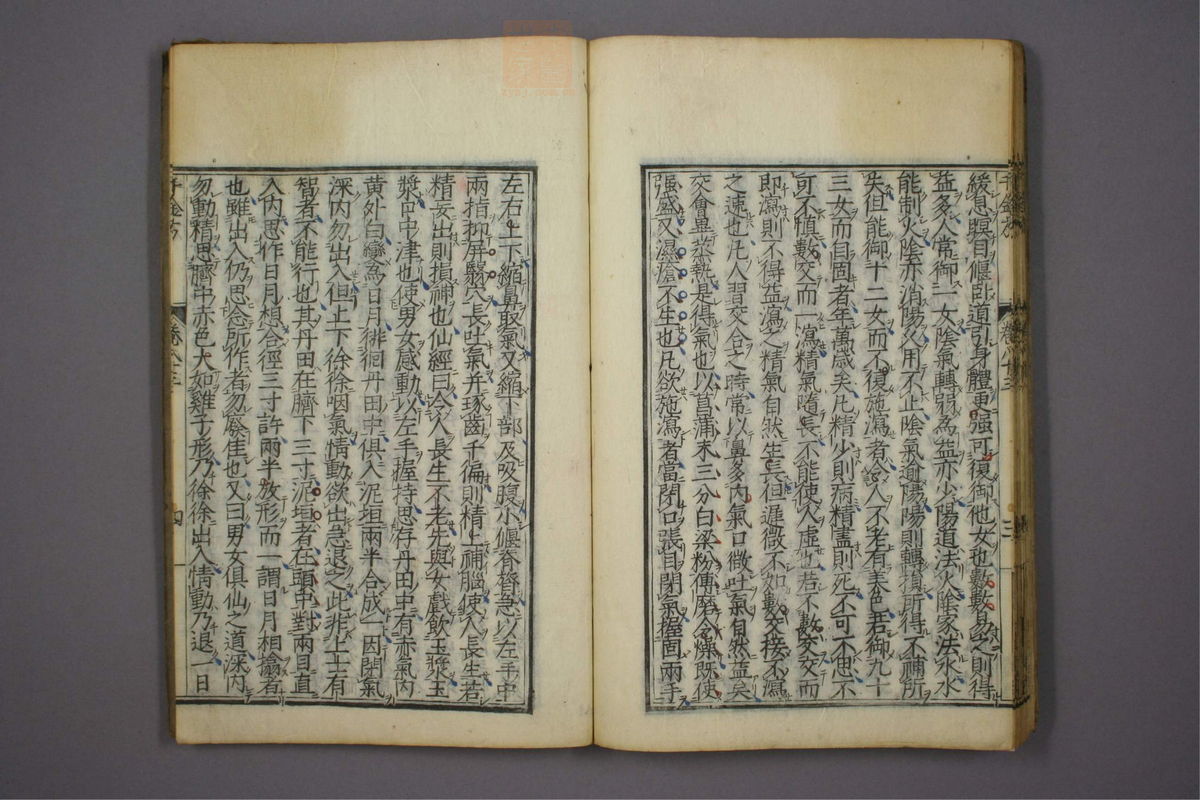 緩息瞑目偃臥道引身體更强可復御他女也數數易之則得
益多人常御一女陰氣轉弱為益亦少陽道法火陰家法水水
能制火陰亦消陽久用不止陰氣逾陽陽則轉損所得不補所
失但能御十二女而不復施瀉者令人不老有美色若御九十
三女而自固者年萬歲矣凡精少則病精盡則死不可不思不
可不慎數交而一瀉精氣隨長不能使人虛也若不數交交而
即瀉則不得益瀉之精氣自然生長但遲微不如數交接不瀉
之速也凡人習交合之時常以鼻多內氣口微吐氣自然益矣
交會畢蒸熱是得氣也以菖蒲末三分白梁粉傅磨令燥既使
强盛又濕瘡不生也凡欲施瀉者當閉口張目閉氣握固兩手
左右上下縮鼻取氣又縮下部及吸腹小偃脊膂急以左手中
兩指抑屏翳穴長吐氣并琢齒千徧則精上補腦使人長生若
精妄出則損神也仙經曰令人長生不老先與女戲飲玉漿玉
漿口中津也使男女感動以左手握持思存丹田中有赤氣內
黃外白變為日月徘徊丹田中俱入泥垣兩半合成一因閉氣
深內勿出入但上下徐徐咽氣情動欲出急退之此非上士有
智者不能行也其丹田在臍下三寸泥垣者在頭中對兩目直
入內思作日月想合徑三寸許兩半放形而一謂日月相擒者
也雖出入仍思念所作者勿廢佳也又曰男女俱仙之道深內
勿動精思臍中赤色大如雞子形乃徐徐出入情動乃退一日
千金方
卷八十三
四